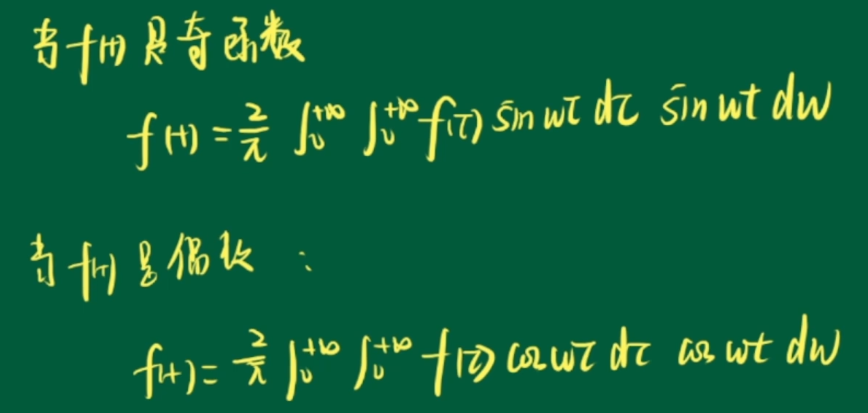 当f(t)是奇函数
f(t) = 2/π ∫₀^{+∞} ∫₀^{+∞} f(τ) sin wτ dτ sin wt dw
当f(t)是偶数：
f(t) = 2/π ∫₀^{+∞} ∫₀^{+∞} f(τ) cos wτ dτ cos wt dw